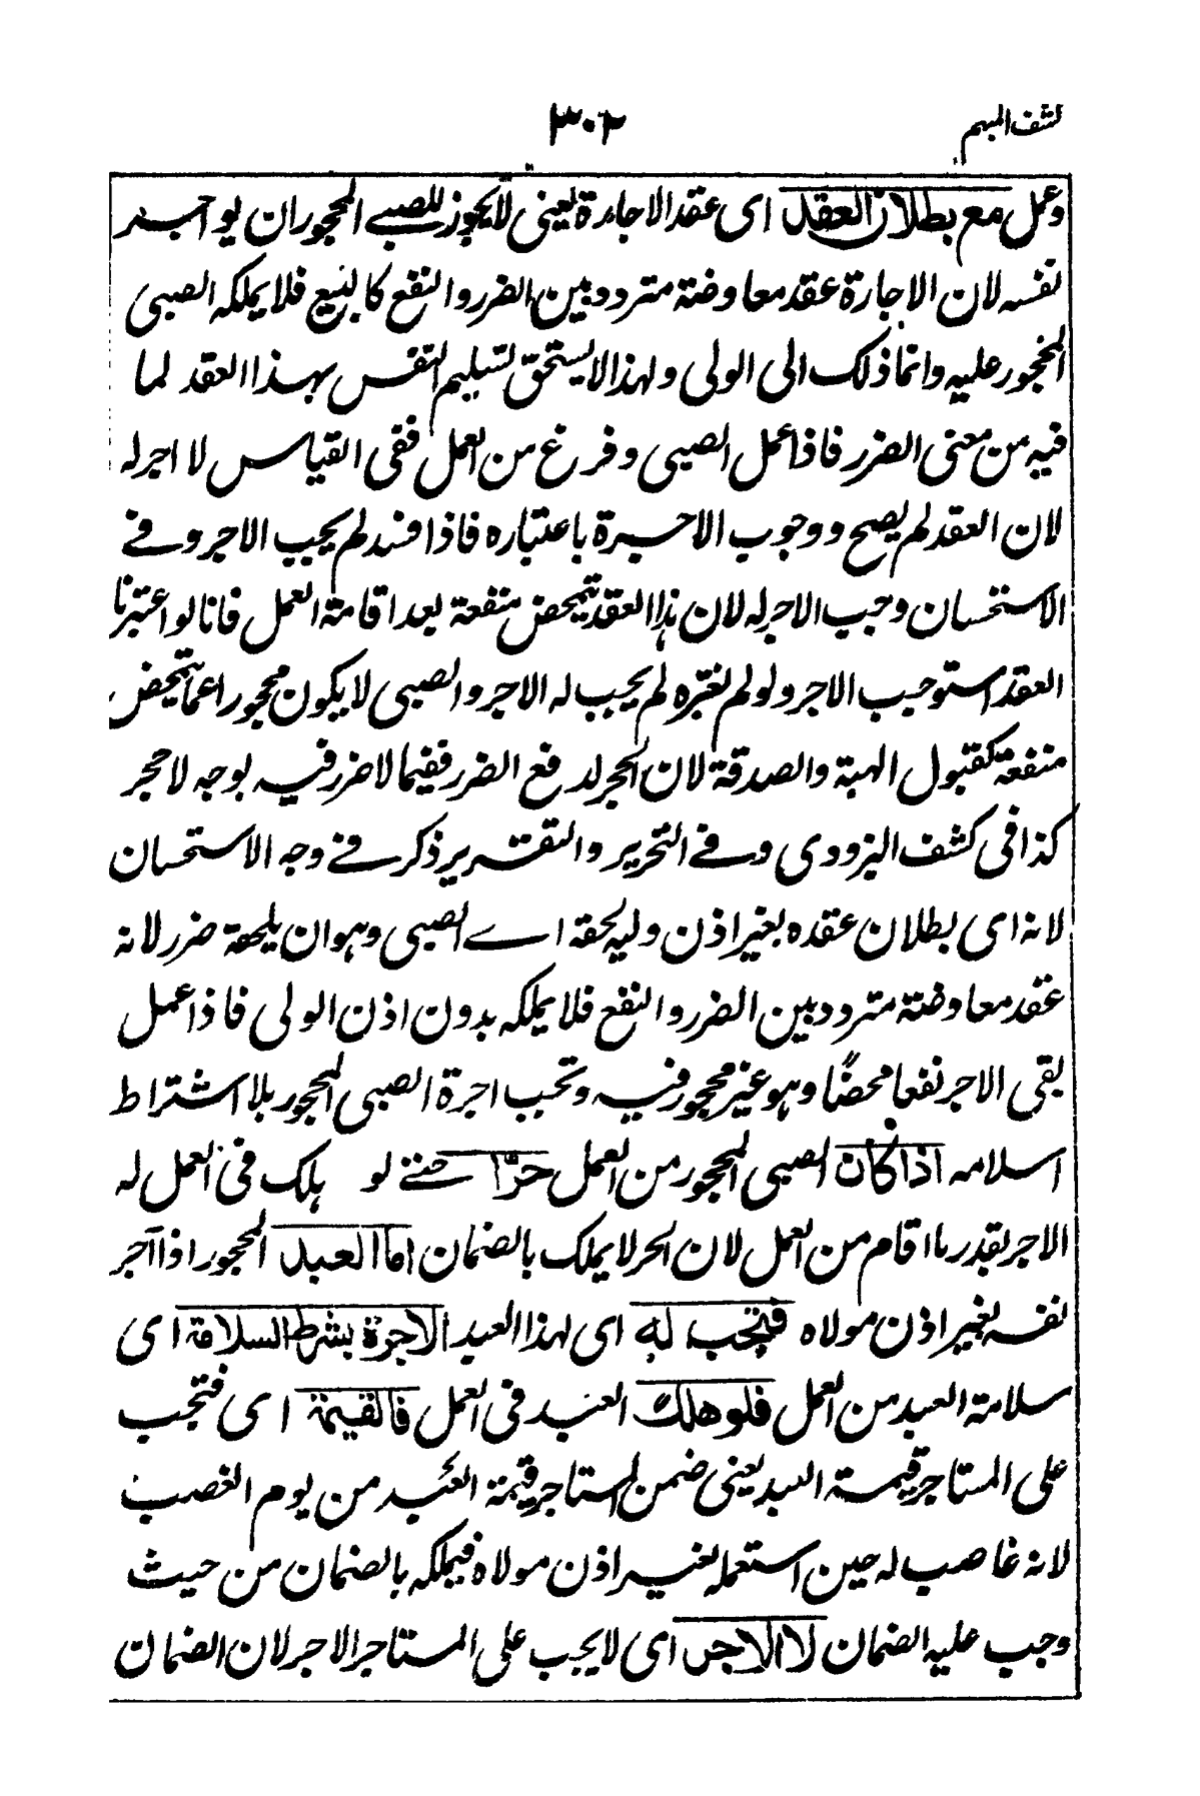 كشف المبهم ٣٠٢
وعمل مع بطلان العقد اى عقد الاجارة يعنى لا يجوز للصبے المحجور ان يواجر
نفسه لان الاجارة عقد معاوضة متردد بين الضرر والنفع كالبيع فلا يملكه الصبى
المحجور عليه وانما ذلك الى الولى ولهذا لا يستحق تسليم النفس بهذا العقد لما
فيه من معنى الضرر فاذا عمل الصبى وفرغ من العمل ففى القياس لا اجر له
لان العقد لم يصح ووجوب الاجرة باعتباره فاذا فسد لم يجب الاجر وفے
الاستحسان وجب الاجر له لان هذا العقد يتمحض منفعة بعد اقامة العمل فانا لو اعتبرنا
العقد استوجب الاجر ولو لم نعتبره لم يجب له الاجر والصبى لا يكون محجورا عما يتمحض
منفعة كقبول الهبة والصدقة لان الحجر لدفع الضرر ففيما لا ضرر فيه بوجه لا حجر
كذا فى كشف البزدوى وفے التحرير والتقرير ذكر فے وجه الاستحسان
لانه اى بطلان عقده بغير اذن وليه لحقه اے الصبى وهو ان يلحقه ضرر لانه
عقد معاوضة متردد بين الضرر والنفع فلا يملكه بدون اذن الولى فاذا عمل
بقى الاجر نفعا محضًا وهو غير محجور فيه وتجب اجرة الصبى المحجور بلا اشتراط
اسلامه اذا كان الصبى المحجور من العمل حرّا حتے لو هلك فى العمل له
الاجر بقدر ما اقام من العمل لان الحر لا يملك بالضمان اما العبد المحجور اذا آجر
نفسه بغير اذن مولاه فتجب له اى لهذا العبد الاجرة بشرط السلامة اى
سلامة العبد من العمل فلو هلك العبد فى العمل فالقيمة اى فتجب
على المستاجر قيمة العبد يعنى ضمن المستاجر قيمة العبد من يوم الغصب
لانه غاصب له حين استعمله بغير اذن مولاه فيملكه بالضمان من حيث
وجب عليه الضمان لا الاجر اى لا يجب على المستاجر الاجر لان الضمان